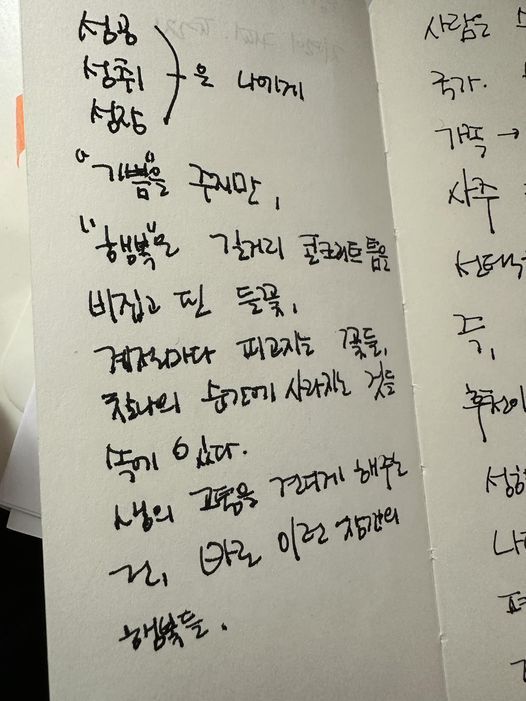 성공
성취 은 나에게
성장
"기쁨"을 주지만,
"행복"은 길거리 콘크리트 틈을
비집고 핀 들꽃,
계절마다 피고지는 꽃들,
찰나의 순간에 사라지는 것들
속에 있다.
생의 고통을 견디게 해주는
건, 바로 이런 찰나의
행복들.
사람은
국가.
가족 →
사주
선택
즉,
후천이
성향
나